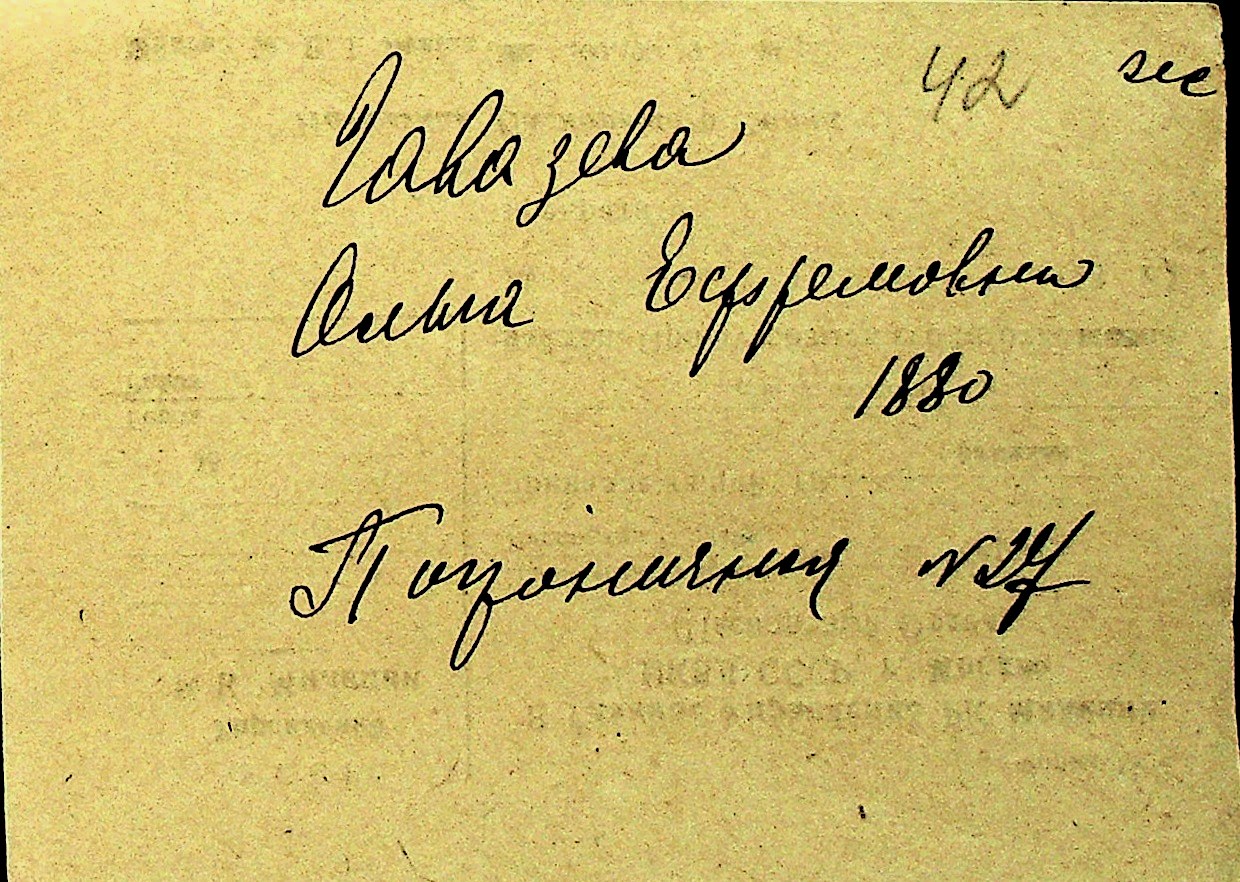 42
Гавазева
Ольга Ефремовна
1880
Пограничная №27